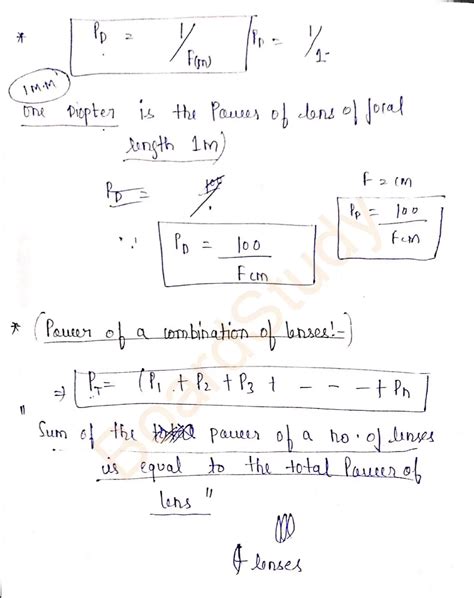 * P_D = 1/F(m) P_D = 1/1
1 M.M
One Diopter is the Power of lens of foral
length 1m)
P_D = 100/
F = cm
∵ P_D = 100/Fcm
P_D = 100/Fcm
* (Power of a combination of lenses!-)
⇒ P_T = (P1 + P2 + P3 + - - - + Pn
" Sum of the power of a no. of lenses
is equal to the total Power of
lens "
lenses
BoardStudy